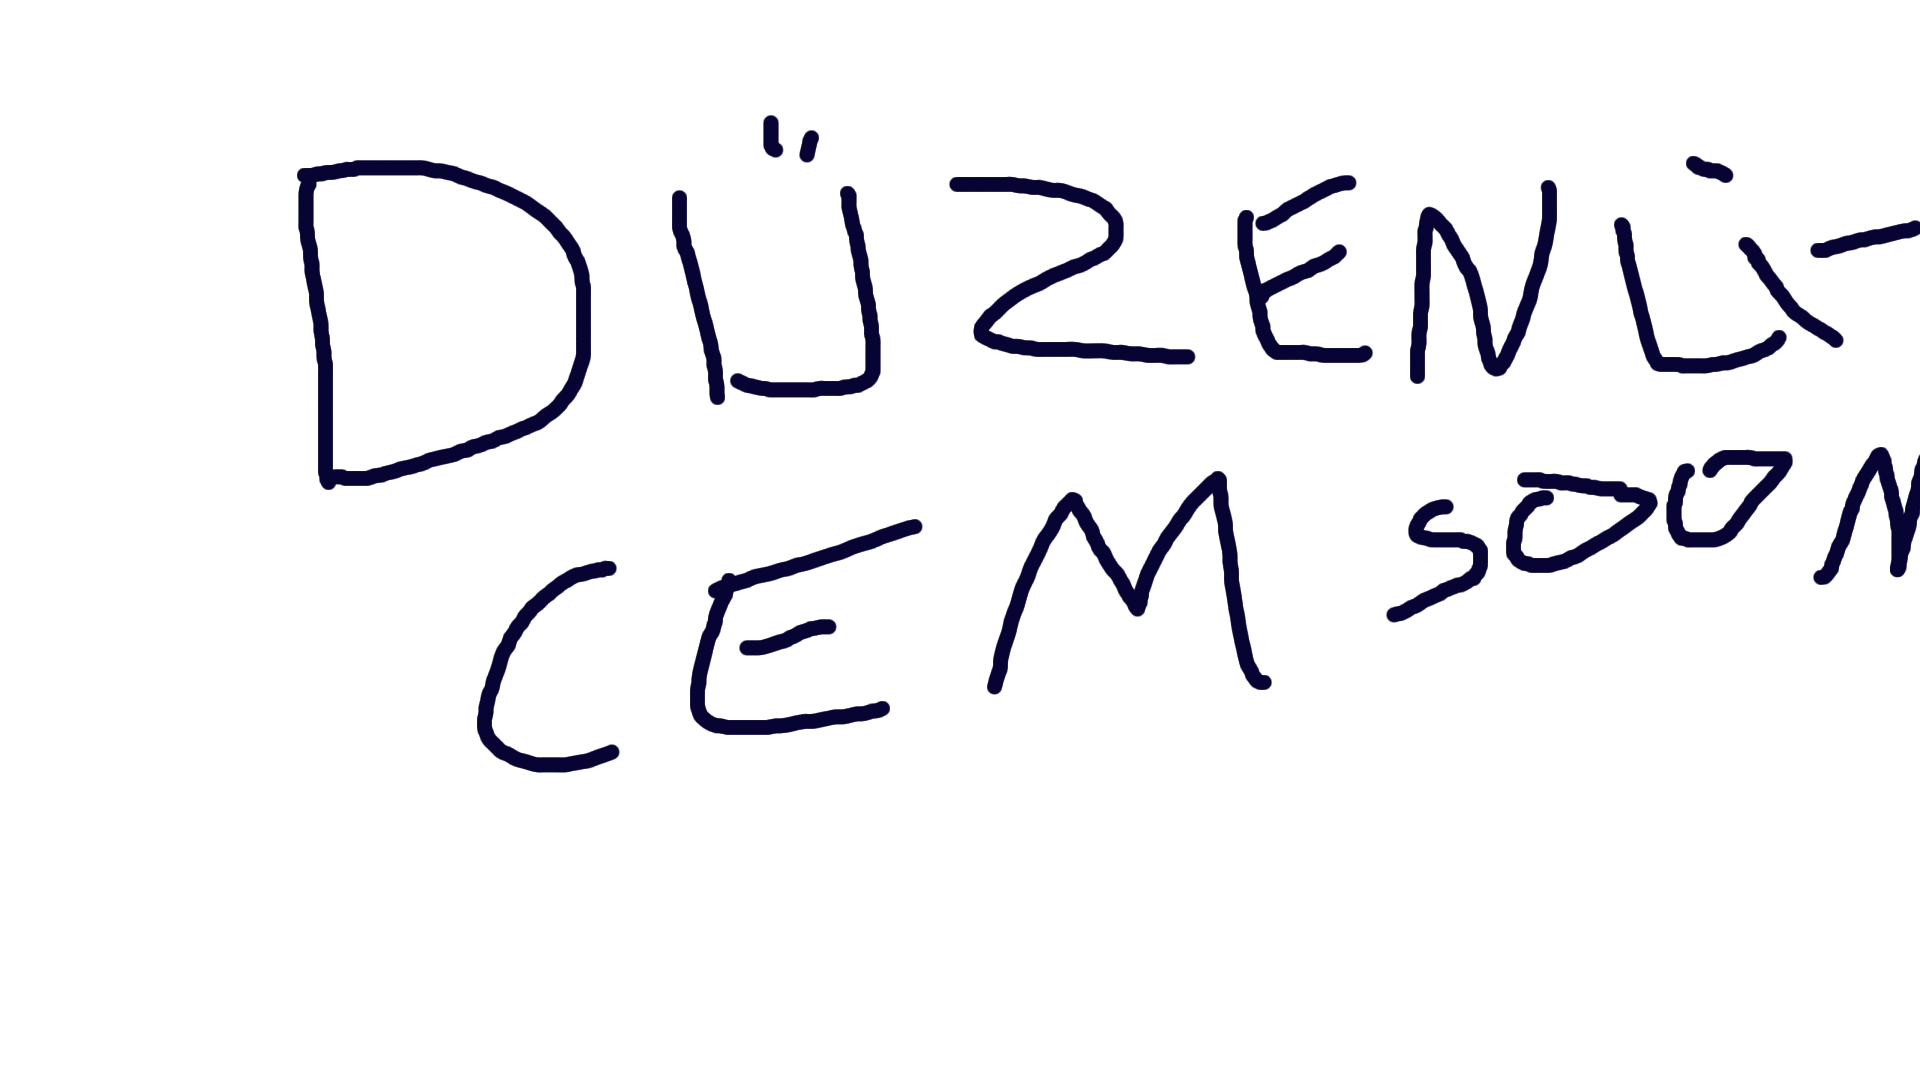 DÜZENLİ
CEM SOON